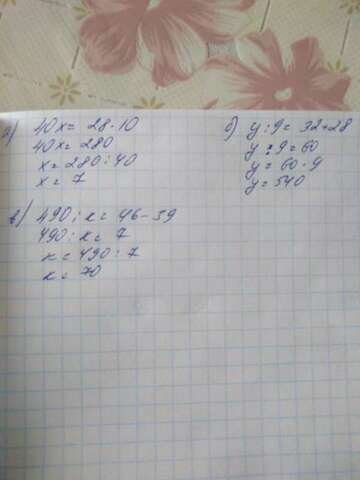 а) 40x = 28·10
40x = 280
x = 280 : 40
x = 7
б) y : 9 = 32+28
y : 9 = 60
y = 60 · 9
y = 540
в) 490 : к = 46 - 39
490 : к = 7
к = 490 : 7
к = 70